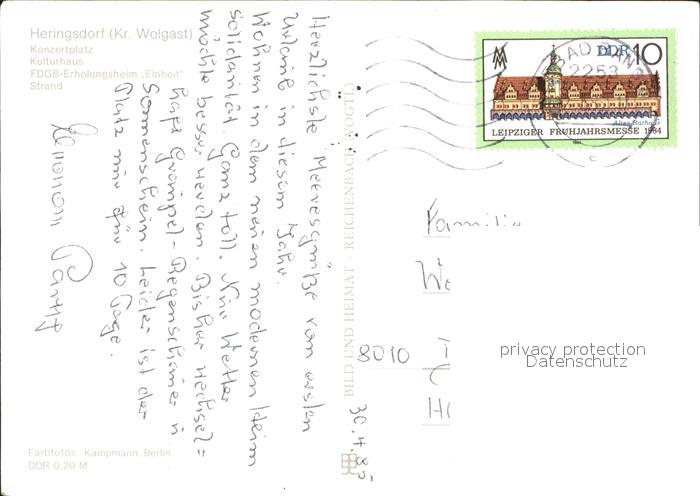 Heringsdorf (Kr. Wolgast)
Konzertplatz
Kulturhaus
FDGB-Erholungsheim „Einheit"
Strand
Herzlichste Meeresgrüße vom ersten
Urlaub in diesem Jahr.
Wohnen in dem neuen modernen Heim
Solidarität. Ganz toll. Nur Wetter
möchte besser werden. Bisher wechsel=
haft Graupel- Regenschauer u
Sonnenschein. Leider ist der
Platz nur für 10 Tage.
Farbfotos: Kampmann, Berlin
DDR 0,20 M
BILD UND HEIMAT · REICHENBACH (VOGTL)
30.4.85
DDR 10
BAD
2253
Altes Rathaus
LEIPZIGER FRÜHJAHRSMESSE 1984
Familie
8010
privacy protection
Datenschutz